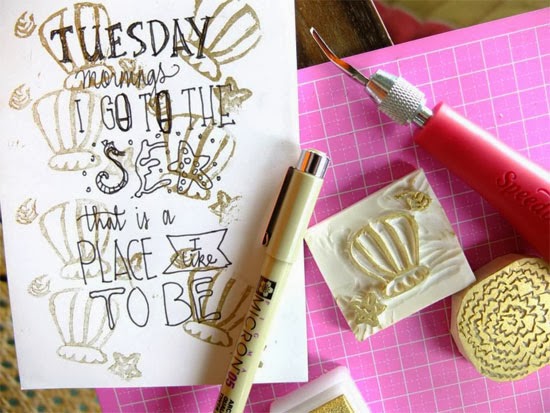 TUESDAY
mornings
I GO TO THE
SEA
that is a
PLACE I like
TO BE
MICRON 05